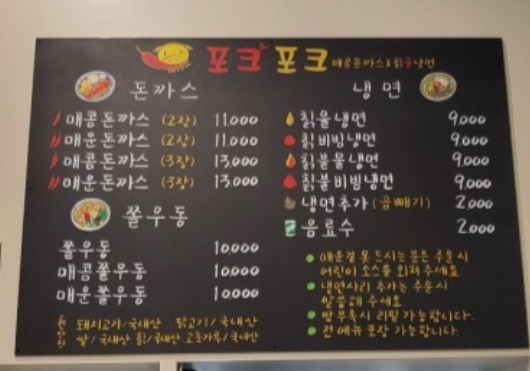 포크 포크 매콤돈까스&칡불냉면
돈까스
매콤돈까스 (2장) 11,000
매운돈까스 (2장) 11,000
매콤돈까스 (3장) 13,000
매운돈까스 (3장) 13,000
쫄우동
쫄우동 10,000
매콤쫄우동 10,000
매운쫄우동 10,000
원산지
돼지고기/국내산 닭고기/국내산
쌀/국내산 칡/국내산 고춧가루/국내산
냉면
칡물냉면 9,000
칡비빔냉면 9,000
칡불물냉면 9,000
칡불비빔냉면 9,000
냉면추가 (곱빼기) 2,000
음료수 2,000
매운걸 못 드시는 분은 주문시
어린이 소스를 외쳐 주세요
냉면사리 추가는 주문시
말씀해 주세요
밥 부족시 리필 가능합니다.
전 메뉴 포장 가능합니다.